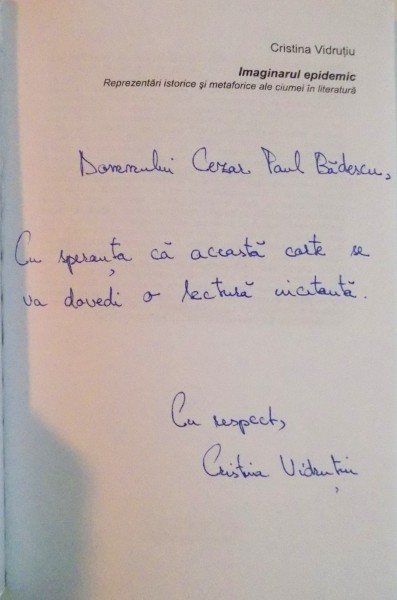 Cristina Vidruțiu
Imaginarul epidemic
Reprezentări istorice și metaforice ale ciumei în literatură
Domnului Cezar Paul Bădescu,
Cu speranța că această carte se
va dovedi o lectură incitantă.
Cu respect,
Cristina Vidruțiu